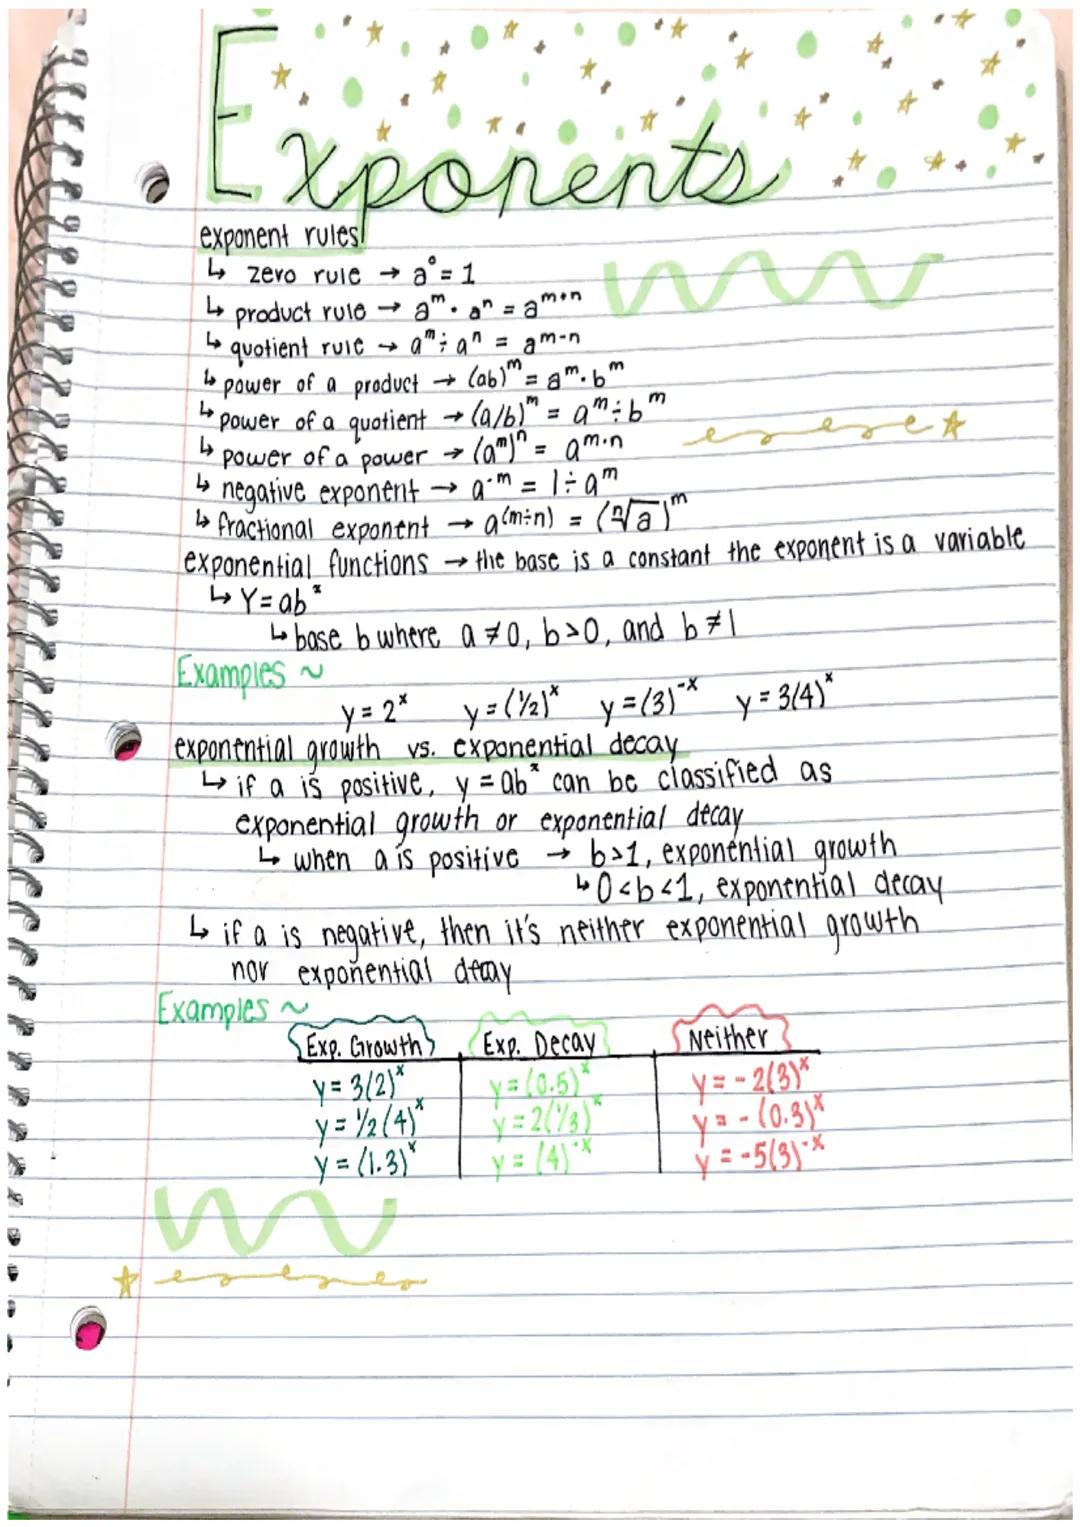 Exponents
exponent rules
↳ zero rule → a⁰ = 1
↳ product rule → aᵐ · aⁿ = aᵐ⁺ⁿ
↳ quotient rule → aᵐ ÷ aⁿ = aᵐ⁻ⁿ
↳ power of a product → (ab)ᵐ = aᵐ · bᵐ
↳ power of a quotient → (a/b)ᵐ = aᵐ ÷ bᵐ
↳ power of a power → (aᵐ)ⁿ = aᵐ·ⁿ
↳ negative exponent → a⁻ᵐ = 1 ÷ aᵐ
↳ fractional exponent → a⁽ᵐ÷ⁿ⁾ = (ⁿ√a)ᵐ
exponential functions → the base is a constant the exponent is a variable
↳ Y = abˣ
↳ base b where a ≠ 0, b > 0, and b ≠ 1
Examples ~
y = 2ˣ y = (1/2)ˣ y = (3)⁻ˣ y = 3(4)ˣ
exponential growth vs. exponential decay
↳ if a is positive, y = abˣ can be classified as
exponential growth or exponential decay
↳ when a is positive → b > 1, exponential growth
↳ 0 < b < 1, exponential decay
↳ if a is negative, then it's neither exponential growth
nor exponential decay
Examples ~
Exp. Growth Exp. Decay Neither
y = 3(2)ˣ y = (0.5)ˣ y = -2(3)ˣ
y = 1/2(4)ˣ y = 2(1/3)ˣ y = -(0.3)ˣ
y = (1.3)ˣ y = (4)⁻ˣ y = -5(3)⁻ˣ